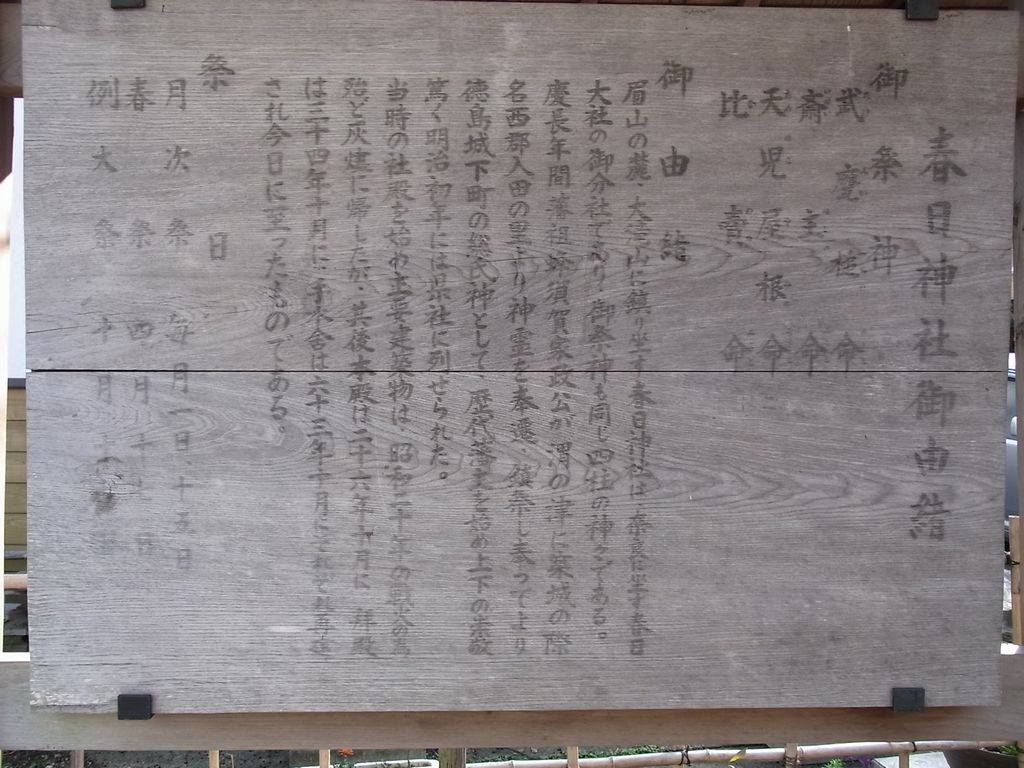 春日神社御由緒
御祭神
武甕槌命
斎主命
天児屋根命
比売命
御由緒
眉山の麓、大滝山に鎮り坐す春日神社は、奈良に坐す春日
大社の御分社であり御祭神も同じ四柱の神々である。
慶長年間、藩祖蜂須賀家政公が渭の津に築城の際
名西郡入田の里より神霊を奉遷、鎮祭し奉ってより
徳島城下町の総氏神として、歴代藩主を始め上下の崇敬
篤く明治初年には県社に列せられた。
当時の社殿を始め主要建築物は、昭和二十年の戦災の為
殆ど灰燼に帰したが、其後本殿は二十六年十月に、拝殿
は三十四年十月に、手水舎は六十三年十月にそれぞれ再建
され今日に至ったものである。
祭日
月次祭 毎月一日、十五日
春祭 四月
例大祭 十月